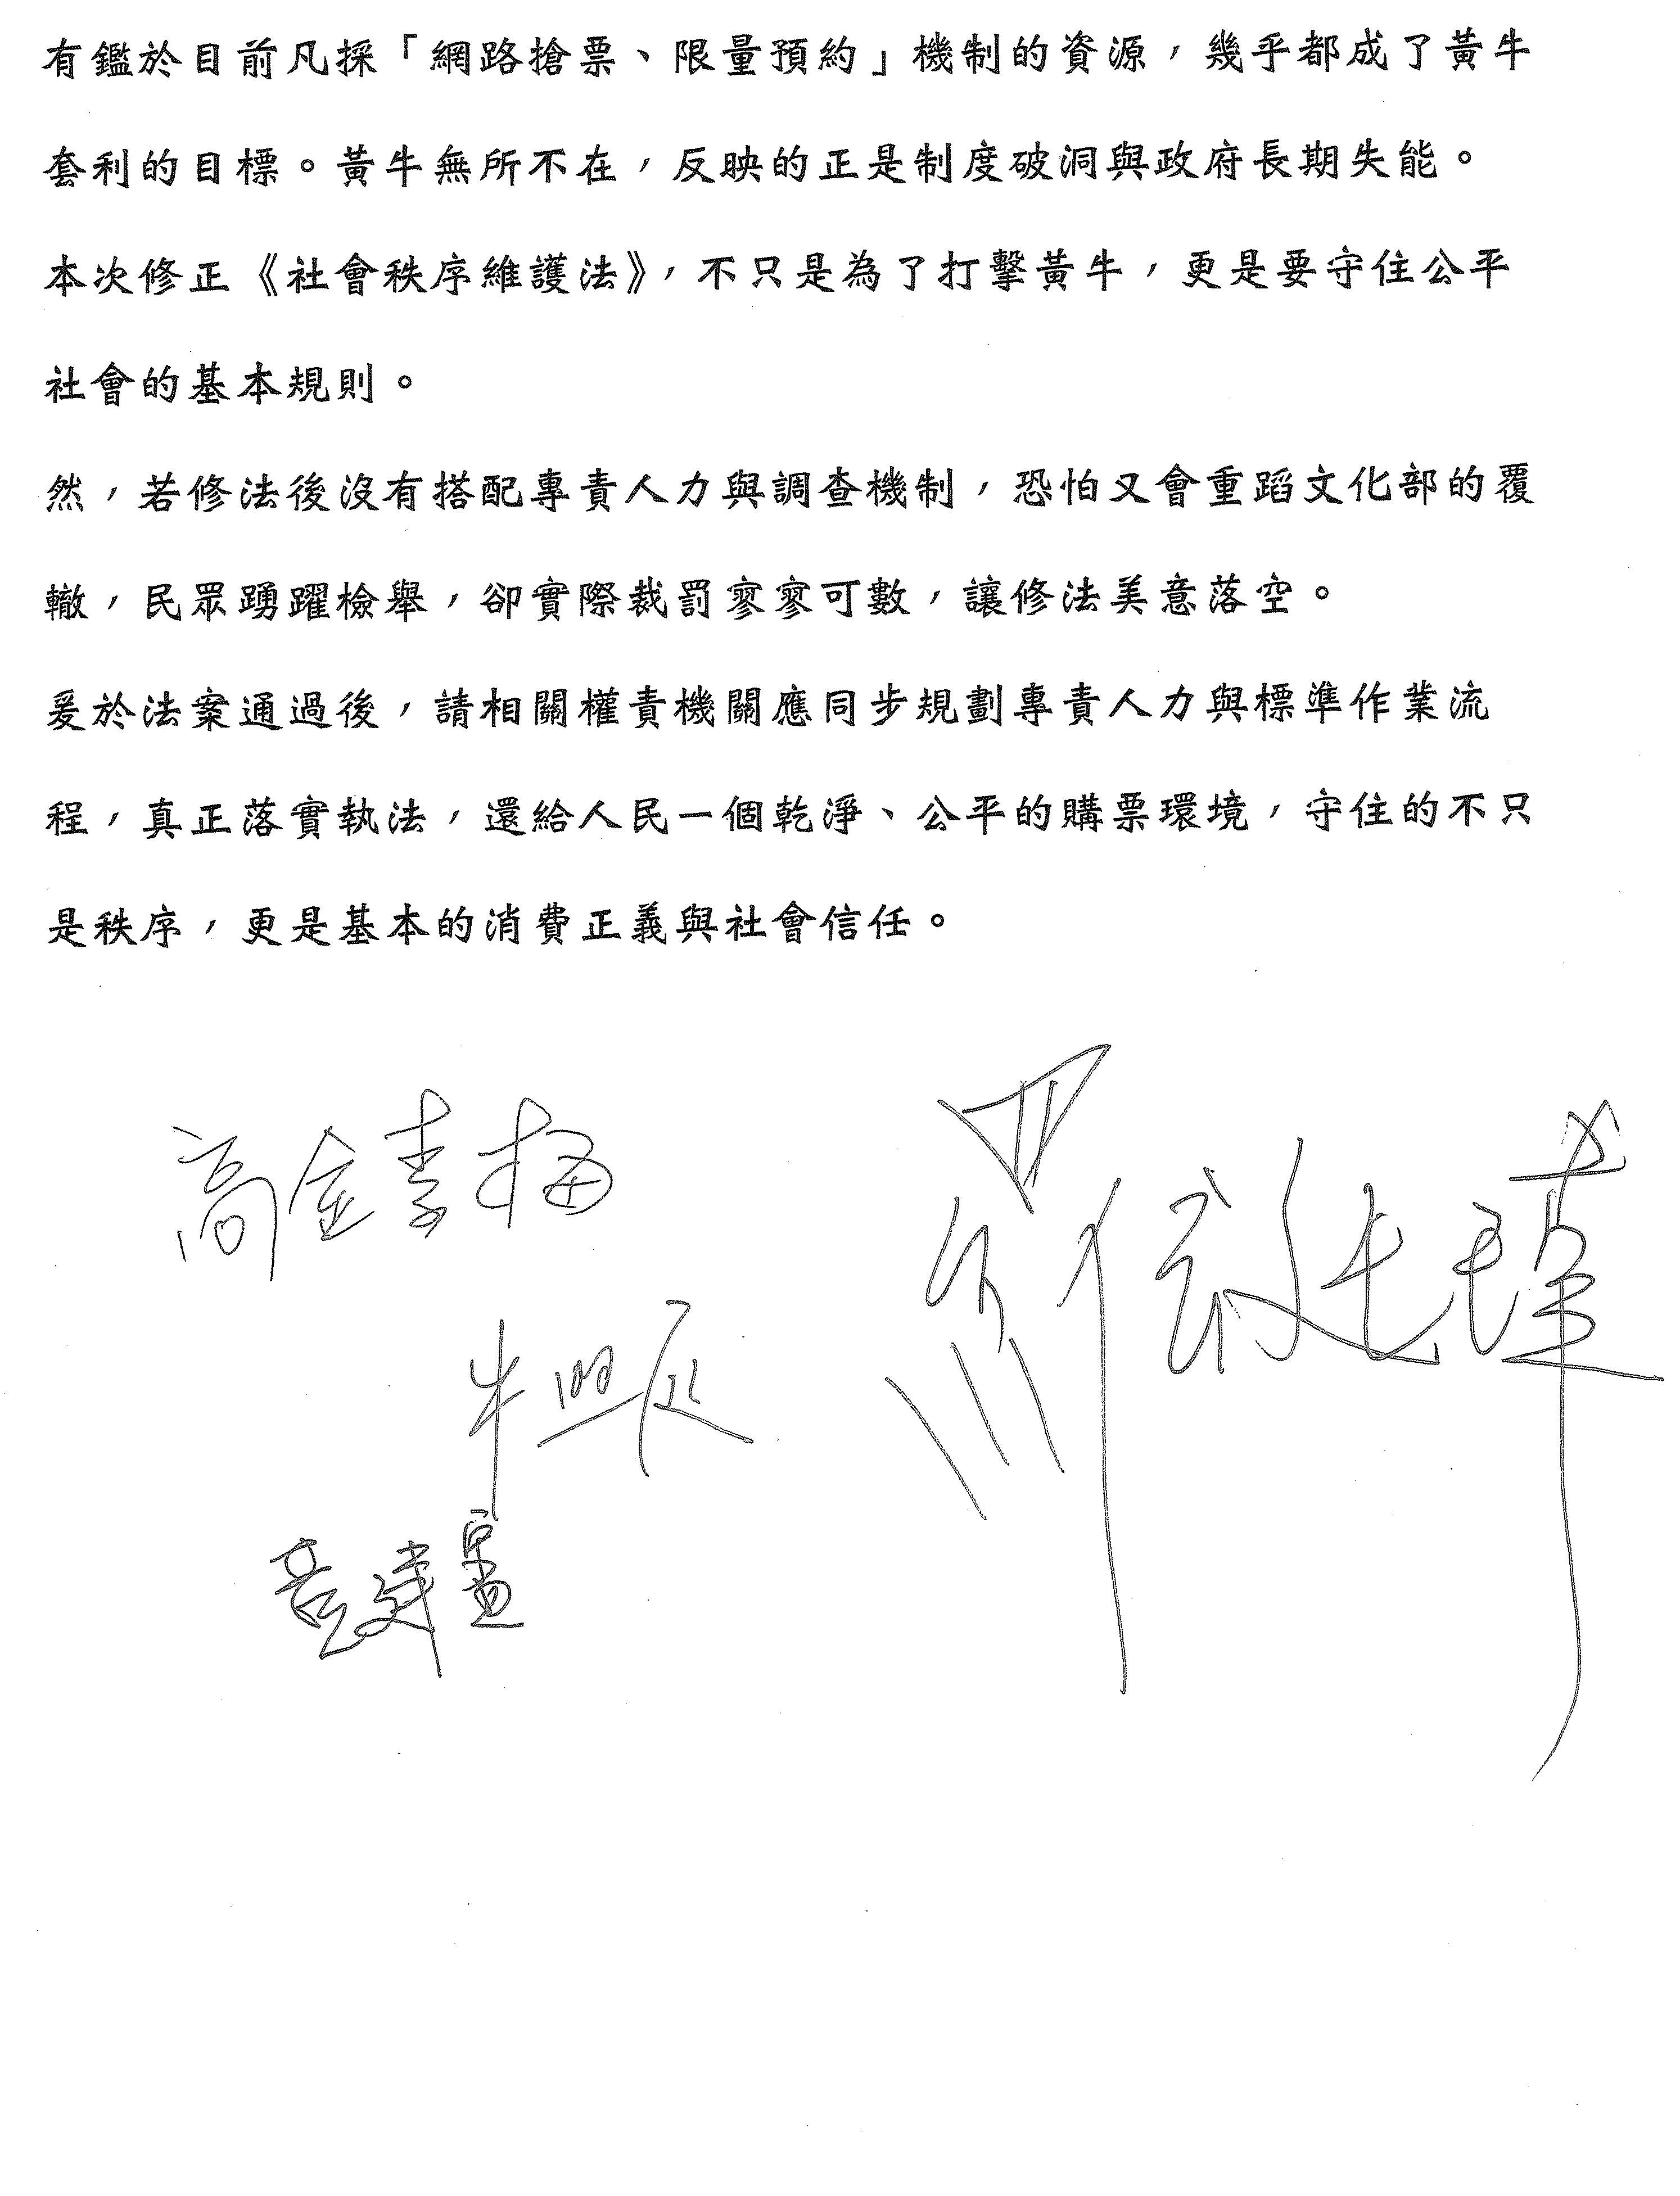 有鑑於目前凡採「網路搶票、限量預約」機制的資源，幾乎都成了黃牛
套利的目標。黃牛無所不在，反映的正是制度破洞與政府長期失能。
本次修正《社會秩序維護法》，不只是為了打擊黃牛，更是要守住公平
社會的基本規則。
然，若修法後沒有搭配專責人力與調查機制，恐怕又會重蹈文化部的覆
轍，民眾踴躍檢舉，卻實際裁罰寥寥可數，讓修法美意落空。
爰於法案通過後，請相關權責機關應同步規劃專責人力與標準作業流
程，真正落實執法，還給人民一個乾淨、公平的購票環境，守住的不只
是秩序，更是基本的消費正義與社會信任。
高金素梅